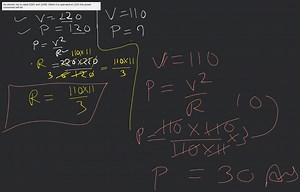 An electric fan is rated 220V and 120W. When it is operated at 110V the power consumed will be
V = 220
P = 120
P = V²/R
R = 220×220/120 = 110×11/3
R = 110×11/3
V = 110
P = ?
V = 110
P = V²/R
P = 110 × 110/110×11 ×3
10
P = 30 Ans